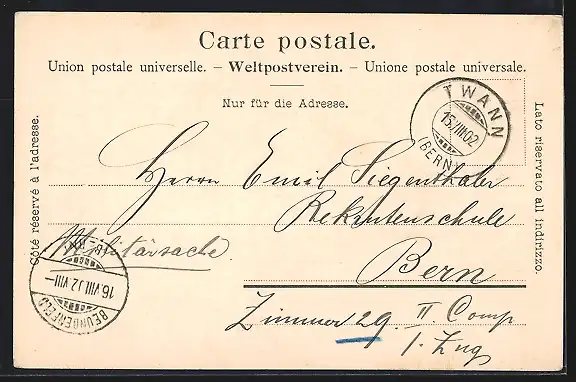 Carte postale.
Union postale universelle. – Weltpostverein. – Unione postale universale.
Nur für die Adresse.
Côté réservé à l'adresse.
Lato riservato all indirizzo.
TWANN
15.VIII.02
(BERN)
Herrn Emil Siegenthaler
Rekrutenschule
Militärsache
Bern
Zimmer 29. II Comp
1. Zug
BERN
16.VIII.12 VIII–
BEUNDENFELD